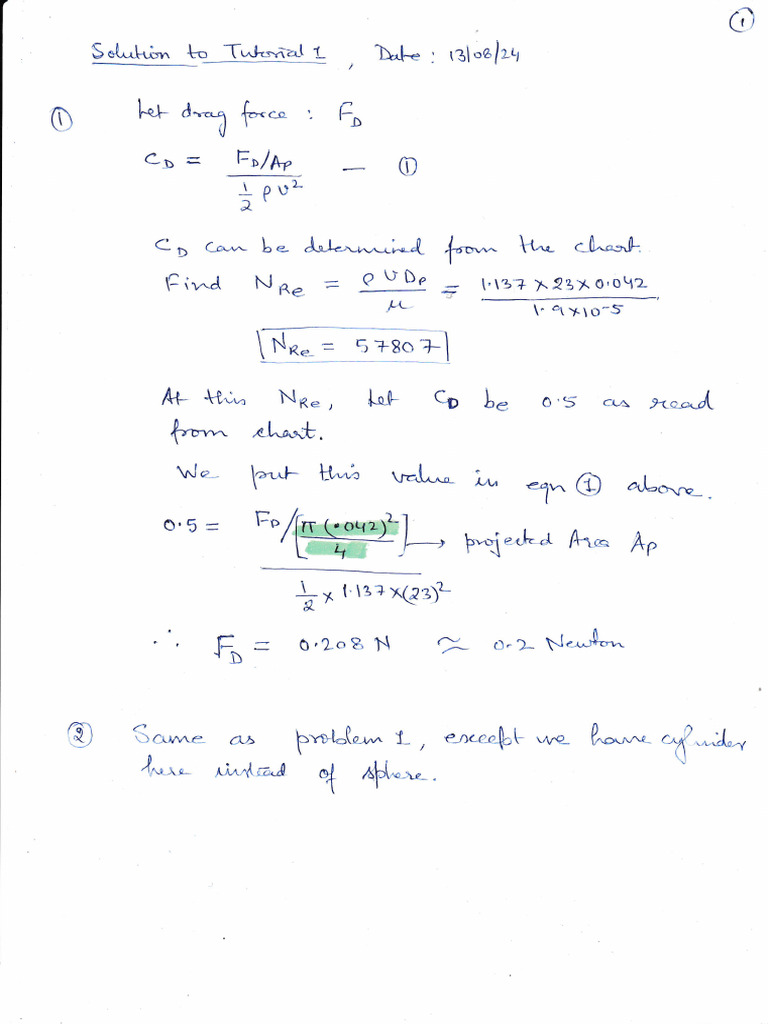 ①
Solution to Tutorial 1 , Date : 13/08/24
① Let drag force : F_D
C_D = (F_D/A_P) / (1/2 ρ v²) — ①
C_D can be determined from the chart.
Find N_Re = ρ v D_P / μ = 1.137 × 23 × 0.042 / 1.9×10⁻⁵
N_Re = 57807
At this N_Re, Let C_D be 0.5 as read
from chart.
We put this value in eqn ① above.
0.5 = F_D/[π (.042)² / 4] → projected Area A_P
1/2 × 1.137 × (23)²
∴ F_D = 0.208 N ≈ 0.2 Newton
② Same as problem 1, except we have cylinder
here instead of sphere.